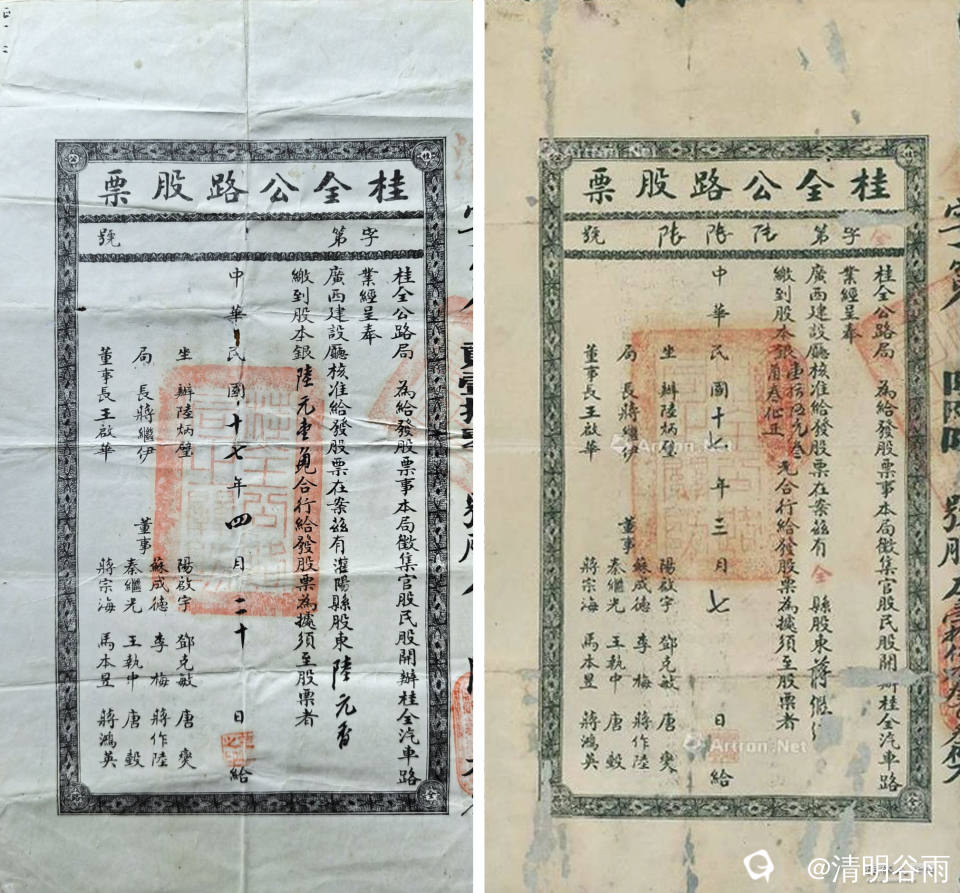 桂全公路股票
字第 號
桂全公路局 為給發股票事本局徵集官股民股開辦桂全汽車路
業經呈奉
廣西建設廳核准給發股票在案茲有灌陽縣股東陸元香
繳到股本銀陸元 合行給發股票為據須至股票者
中華民國十七年四月二十日給
坐辦陸炳璧
局長蔣繼伊
董事長王啟華
董事
陽啟宇 鄧克敏 唐奭
蘇成德 李梅 蔣作陸
秦繼光 王執中 唐毅
蔣宗海 馬本昱 蔣鴻英
桂全公路股票
全字第 號
桂全公路局 為給發股票事本局徵集官股民股開辦桂全汽車路
業經呈奉
廣西建設廳核准給發股票在案茲有全縣股東蔣
繳到股本銀 合行給發股票為據須至股票者
中華民國十七年三月七日給
坐辦陸炳璧
局長蔣繼伊
董事長王啟華
董事
陽啟宇 鄧克敏 唐奭
蘇成德 李梅 蔣作陸
秦繼光 王執中 唐毅
蔣宗海 馬本昱 蔣鴻英
Artron.Net
@清明谷雨